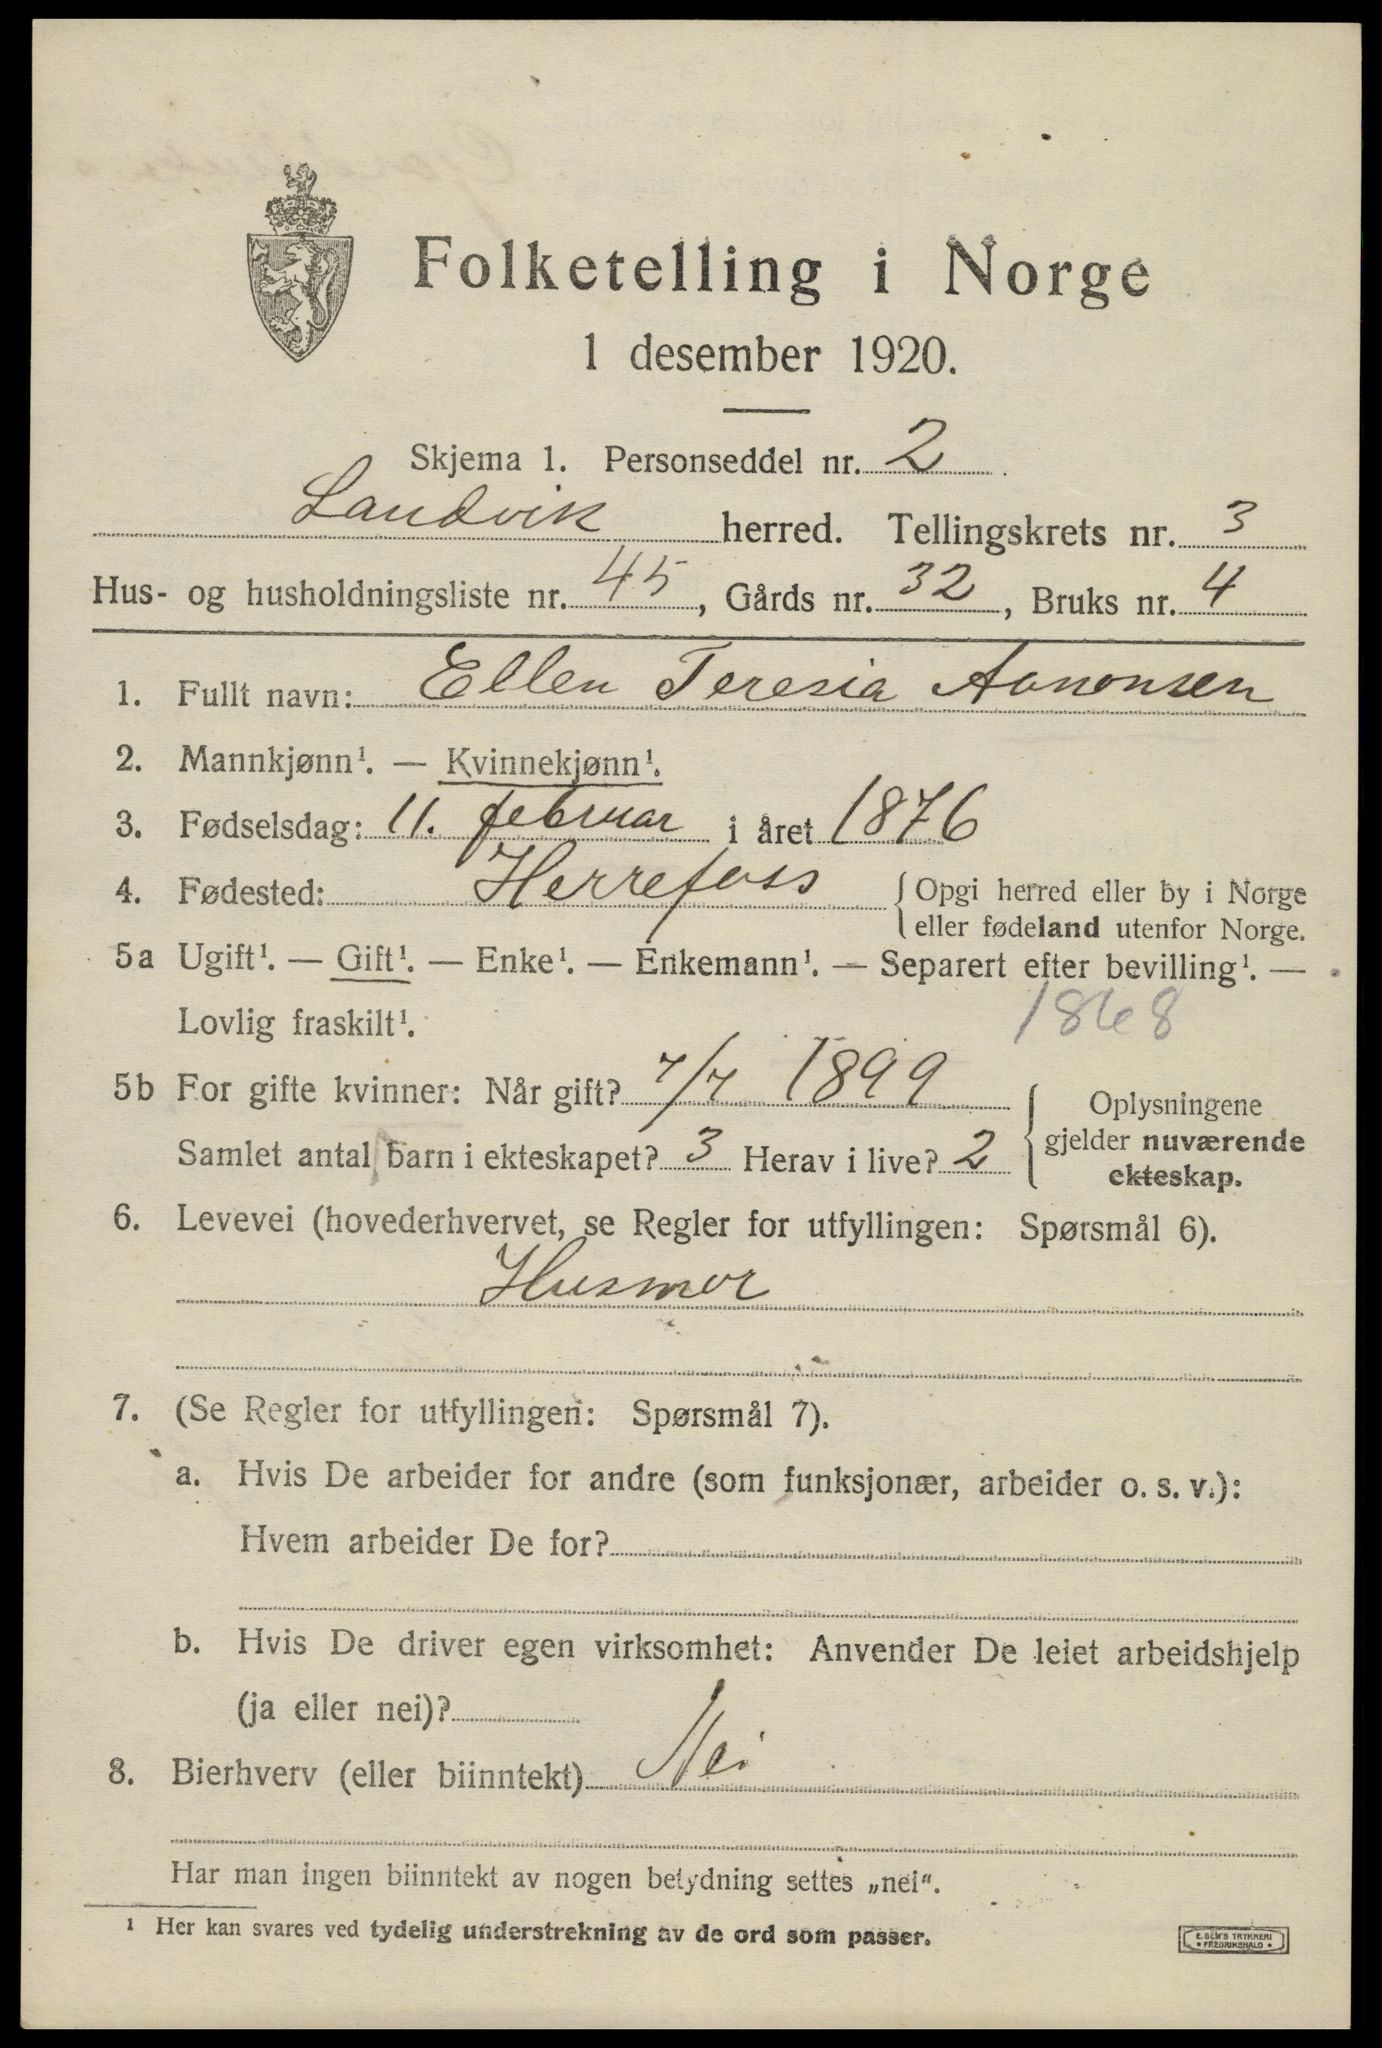 Folketelling i Norge
1 desember 1920.
Skjema 1. Personseddel nr. 2
Landvik herred. Tellingskrets nr. 3
Hus- og husholdningsliste nr. 45, Gårds nr. 32, Bruks nr. 4
1. Fullt navn: Ellen Teresia Aanonsen
2. Mannkjønn¹. — Kvinnekjønn¹.
3. Fødselsdag: 11. februar i året 1876
4. Fødested: Herrefoss { Opgi herred eller by i Norge
eller fødeland utenfor Norge.
5a Ugift¹. — Gift¹. — Enke¹. — Enkemann¹. — Separert efter bevilling¹. —
Lovlig fraskilt¹.
1868
5b For gifte kvinner: Når gift? 7/7 1899
Samlet antal barn i ekteskapet? 3 Herav i live? 2
{ Oplysningene
gjelder nuværende
ekteskap.
6. Levevei (hovederhvervet, se Regler for utfyllingen: Spørsmål 6).
Husmor
7. (Se Regler for utfyllingen: Spørsmål 7).
a. Hvis De arbeider for andre (som funksjonær, arbeider o. s. v.):
Hvem arbeider De for?
b. Hvis De driver egen virksomhet: Anvender De leiet arbeidshjelp
(ja eller nei)?
8. Bierhverv (eller biinntekt) Nei
Har man ingen biinntekt av nogen betydning settes „nei“.
¹ Her kan svares ved tydelig understrekning av de ord som passer.
E. SEM'S TRYKKERI
• FREDRIKSHALD •